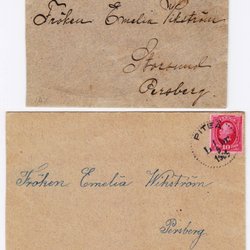 Fröken Emelia Wikström
Storsund
Persberg.
PITEÅ
10
Fröken Emelia Wikström
Persberg.